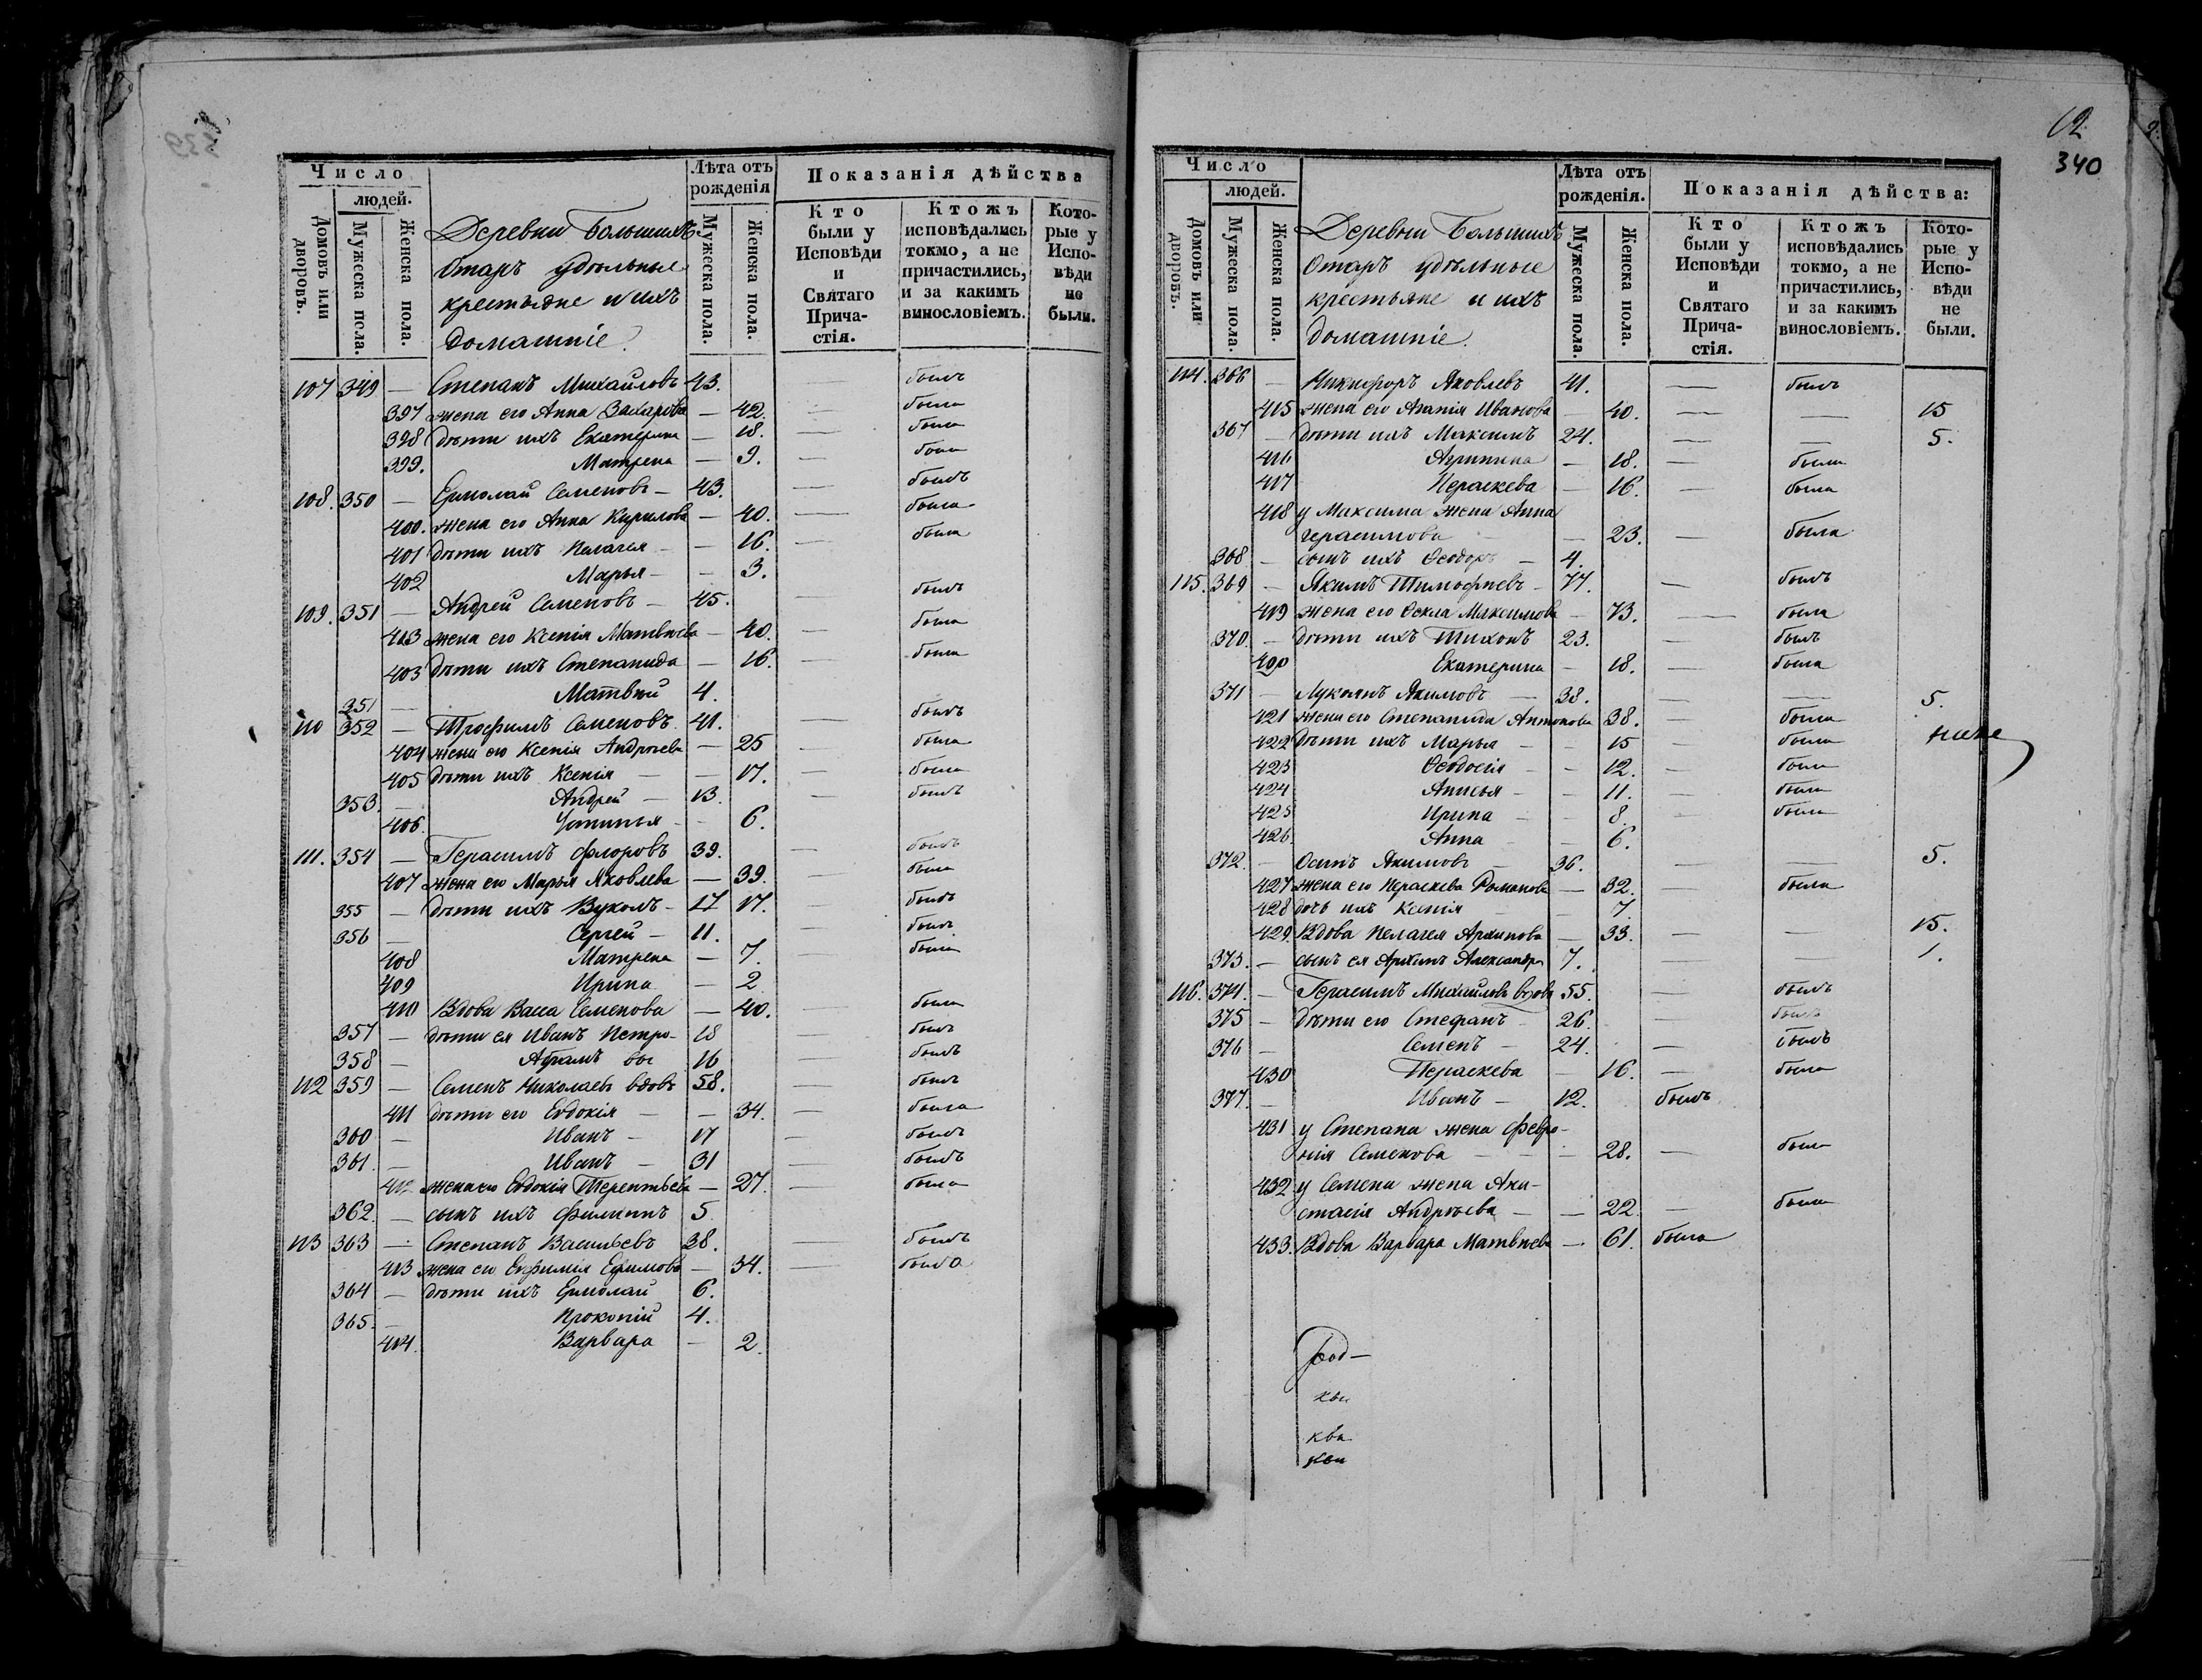 Число
людей.
Домовъ или дворовъ.
Мужеска пола.
Женска пола.
Деревни Большихъ
Отаръ удѣльные
крестьяне и ихъ
домашніе.
Лѣта отъ рожденія
Мужеска пола.
Женска пола.
Показанія дѣйства
Кто были у Исповѣди и Святаго Прича-стія.
Ктожъ исповѣдались токмо, а не причастились, и за какимъ винословіемъ.
Кото-рые у Испо-вѣди не были.
107 349 — Степанъ Михайловъ 43. — былъ
397 жена его Анна Захарова — 42. — была
398 дѣти ихъ Екатерина — 18. — была
399. Матрена — 9. — была
108. 350 — Ермолай Семеновъ — 43. — былъ
400. жена его Анна Кирилова — 40. — была
401 дѣти ихъ Пелагея — — 16. — была
402 Марья — — 3.
109. 351 — Андрей Семеновъ — 45. — былъ
413 жена его Ксенія Матвѣева — 40. — была
403 дѣти ихъ Степанида — 16. — была
351 — Матвѣй 4.
110 352 — Трофимъ Семеновъ 41. — былъ
404 жена его Ксенія Андреева — 25 — была
405 дѣти ихъ Ксенія — — 17. — была
353. — Андрей — 13. — былъ
406. Устинья — — 6.
111. 354 — Герасимъ Флоровъ 39. — былъ
407 жена его Марья Яковлева — 39. — была
355 — дѣти ихъ Вуколъ — 17 17. — былъ
356 — Сергей — 11. — былъ
408 Матрена — 7. — была
409 Ирина — 2
410 Вдова Васса Семенова — 40. — была
357 — дѣти ея Иванъ Петро- 18 — былъ
358 — Абрамъ вы 16 — былъ
112 359 — Семенъ Николаевъ вдовъ 58. — былъ
411 дѣти его Евдокія — — 34. — была
360 — Иванъ — 17 — былъ
361 — Иванъ — 31 — былъ
412 жена его Евдокія Терентьева — 27. — была
362. — сынъ ихъ Филиппъ 5
113 363 — Степанъ Васильевъ 38. — былъ
413 жена его Евфимія Ефимова — 34. — была
364 — дѣти ихъ Ермолай 6.
365. — Прокопій 4.
414. Варвара — 2.
12
340
Число
людей.
Домовъ или дворовъ.
Мужеска пола.
Женска пола.
Деревни Большихъ
Отаръ удѣльные
крестьяне и ихъ
домашніе.
Лѣта отъ рожденія.
Мужеска пола.
Женска пола.
Показанія дѣйства:
Кто были у Исповѣди и Святаго Прича-стія.
Ктожъ исповѣдались токмо, а не причастились, и за какимъ винословіемъ.
Кото-рые у Испо-вѣди не были.
114. 366 — Никифоръ Яковлевъ 41. — былъ
415 жена его Агапія Иванова — 40. — — 15
367 — дѣти ихъ Максимъ 24. — — 5.
416 Агрипина — 18. — была
417 Пераскева — 16. — была
418 у Максима жена Анна
Герасимова — 23. — была
368 — сынъ ихъ Ѳеодоръ — 4.
115. 369 — Якимъ Тимофеевъ — 77. — былъ
419 жена его Ѳекла Максимова — 73. — была
370. — дѣти ихъ Тихонъ 23. — былъ
420 Екатерина — 18. — была
371 — Лукьянъ Якимовъ — 38. — — 5.
421 жена его Степанида Антонова 38. — была
422 дѣти ихъ Марья — — 15 — была
423 Ѳеодосія — — 12. — была
424 Анисья — — 11. — была
425 Ирина — — 8. — была
426. Анна — — 6.
372. — Осипъ Якимовъ — 36. — — 5.
427 жена его Пераскева Романова — 32. — была
428 дочь ихъ Ксенія — — 7.
429. Вдова Пелагея Архипова — 33. — — 15.
373. — сынъ ея Архипъ Александр 7. — — 1.
116. 374. — Герасимъ Михайловъ вдовъ 55. — былъ
375 — дѣти его Стефанъ — 26. — былъ
376 — Семенъ — 24. — былъ
430 Пераскева — 16. — была
377. — Иванъ — 12. былъ
431 у Степана жена Февро-
нія Семенова — — — 28. — была
432 у Семена жена Ана-
стасія Андреева — — 22. — была
433. Вдова Варвара Матвѣева — 61. была